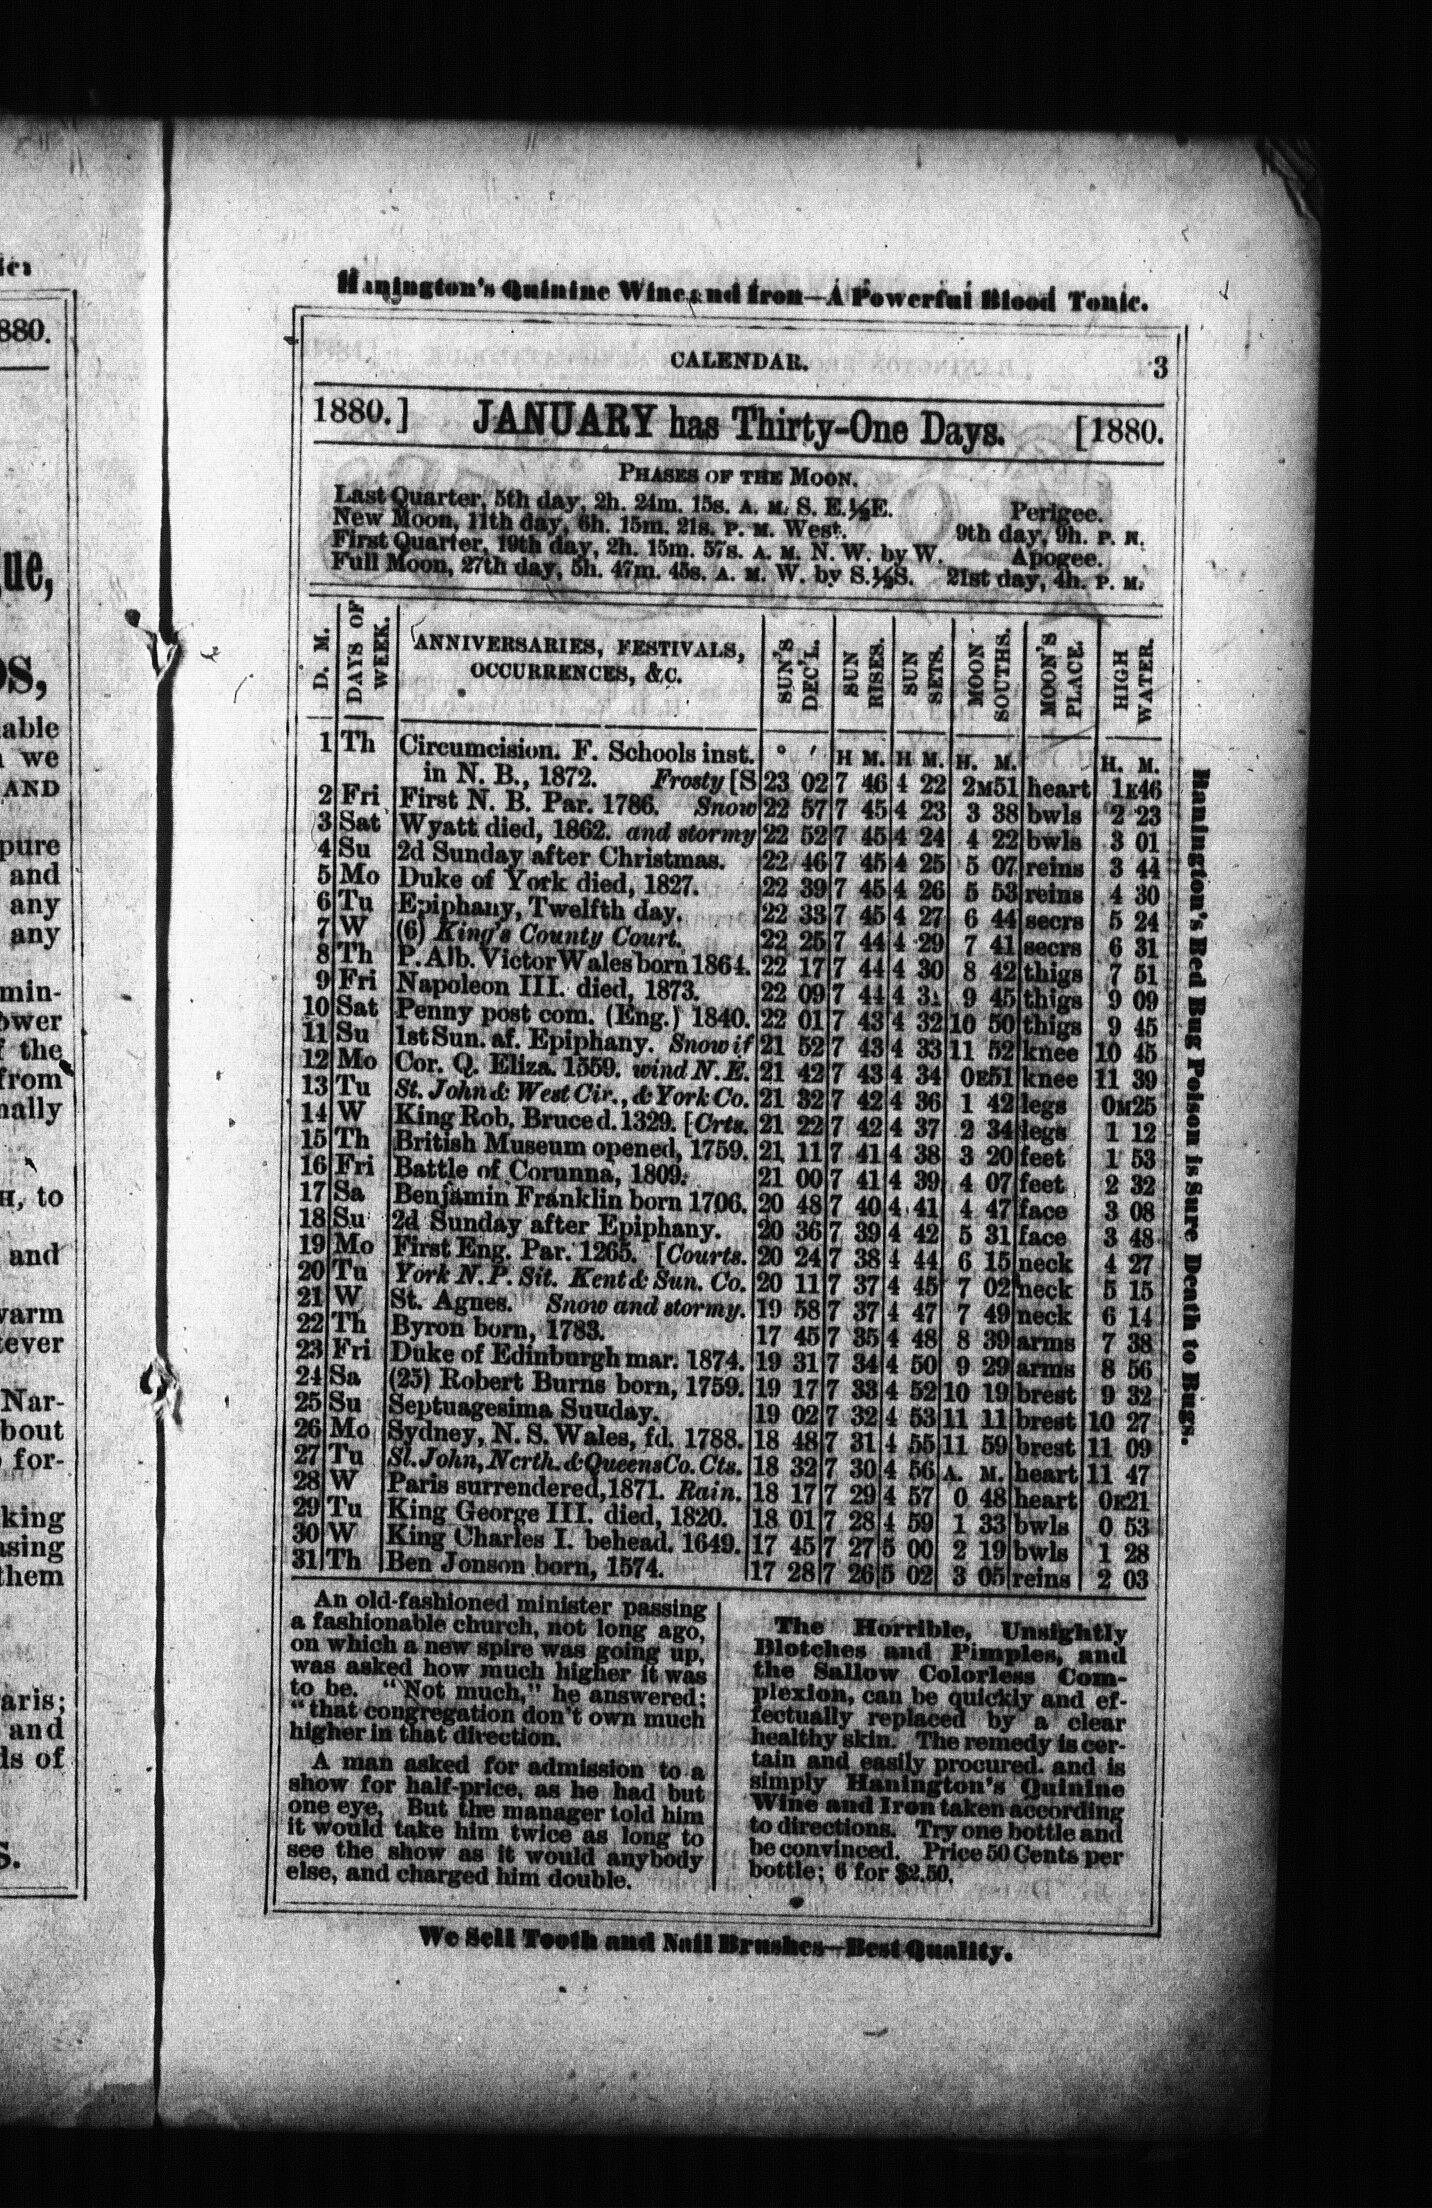 Hanington's Quinine Wine and Iron—A Powerful Blood Tonic.
CALENDAR. 3
1880.] JANUARY has Thirty-One Days. [1880.
PHASES OF THE MOON.
Last Quarter, 5th day, 2h. 24m. 15s. A. M. S. E.½E. Perigee.
New Moon, 11th day, 6h. 15m. 21s. P. M. West. 9th day, 9h. P. M.
First Quarter, 19th day, 2h. 15m. 57s. A. M. N. W. by W. Apogee.
Full Moon, 27th day, 5h. 47m. 45s. A. M. W. by S.½S. 21st day, 4h. P. M.
D. M. DAYS OF WEEK. ANNIVERSARIES, FESTIVALS, OCCURRENCES, &C. SUN'S DEC'L. SUN RISES. SUN SETS. MOON SOUTHS. MOON'S PLACE. HIGH WATER.
1 Th Circumcision. F. Schools inst. ° ′ H M. H M. H. M. H. M.
in N. B., 1872. Frosty [S 23 02 7 46 4 22 2M51 heart 1E46
2 Fri First N. B. Par. 1786. Snow 22 57 7 45 4 23 3 38 bwls 2 23
3 Sat Wyatt died, 1862. and stormy 22 52 7 45 4 24 4 22 bwls 3 01
4 Su 2d Sunday after Christmas. 22 46 7 45 4 25 5 07 reins 3 44
5 Mo Duke of York died, 1827. 22 39 7 45 4 26 5 53 reins 4 30
6 Tu Epiphany, Twelfth day. 22 33 7 45 4 27 6 44 secrs 5 24
7 W (6) King's County Court. 22 25 7 44 4 29 7 41 secrs 6 31
8 Th P. Alb. Victor Wales born 1864. 22 17 7 44 4 30 8 42 thigs 7 51
9 Fri Napoleon III. died, 1873. 22 09 7 44 4 31 9 45 thigs 9 09
10 Sat Penny post com. (Eng.) 1840. 22 01 7 43 4 32 10 50 thigs 9 45
11 Su 1st Sun. af. Epiphany. Snow if 21 52 7 43 4 33 11 52 knee 10 45
12 Mo Cor. Q. Eliza. 1559. wind N. E. 21 42 7 43 4 34 0E51 knee 11 39
13 Tu St. John & West Cir., & York Co. 21 32 7 42 4 36 1 42 legs 0M25
14 W King Rob. Bruce d. 1329. [Crts. 21 22 7 42 4 37 2 34 legs 1 12
15 Th British Museum opened, 1759. 21 11 7 41 4 38 3 20 feet 1 53
16 Fri Battle of Corunna, 1809. 21 00 7 41 4 39 4 07 feet 2 32
17 Sa Benjamin Franklin born 1706. 20 48 7 40 4 41 4 47 face 3 08
18 Su 2d Sunday after Epiphany. 20 36 7 39 4 42 5 31 face 3 48
19 Mo First Eng. Par. 1265. [Courts. 20 24 7 38 4 44 6 15 neck 4 27
20 Tu York N. P. Sit. Kent & Sun. Co. 20 11 7 37 4 45 7 02 neck 5 15
21 W St. Agnes. Snow and stormy. 19 58 7 37 4 47 7 49 neck 6 14
22 Th Byron born, 1783. 17 45 7 35 4 48 8 39 arms 7 38
23 Fri Duke of Edinburgh mar. 1874. 19 31 7 34 4 50 9 29 arms 8 56
24 Sa (25) Robert Burns born, 1759. 19 17 7 33 4 52 10 19 brest 9 32
25 Su Septuagesima Suuday. 19 02 7 32 4 53 11 11 brest 10 27
26 Mo Sydney, N. S. Wales, fd. 1788. 18 48 7 31 4 55 11 59 brest 11 09
27 Tu St. John, North. & Queens Co. Cts. 18 32 7 30 4 56 A. M. heart 11 47
28 W Paris surrendered, 1871. Rain. 18 17 7 29 4 57 0 48 heart 0E21
29 Tu King George III. died, 1820. 18 01 7 28 4 59 1 33 bwls 0 53
30 W King Charles I. behead. 1649. 17 45 7 27 5 00 2 19 bwls 1 28
31 Th Ben Jonson born, 1574. 17 28 7 26 5 02 3 05 reins 2 03
An old-fashioned minister passing
a fashionable church, not long ago,
on which a new spire was going up,
was asked how much higher it was
to be. "Not much," he answered;
"that congregation don't own much
higher in that direction.
A man asked for admission to a
show for half-price, as he had but
one eye. But the manager told him
it would take him twice as long to
see the show as it would anybody
else, and charged him double.
The Horrible, Unsightly
Blotches and Pimples, and
the Sallow Colorless Com-
plexion, can be quickly and ef-
fectually replaced by a clear
healthy skin. The remedy is cer-
tain and easily procured. and is
simply Hanington's Quinine
Wine and Iron taken according
to directions. Try one bottle and
be convinced. Price 50 Cents per
bottle; 6 for $2.50.
We Sell Tooth and Nail Brushes—Best Quality.
Hanington's Bed Bug Poison is Sure Death to Bugs.
880.
ue,
os,
able
we
AND
pure
and
any
any
min-
ower
f the
from
nally
H, to
and
warm
tever
Nar-
bout
for-
king
asing
them
aris;
and
ds of
S.